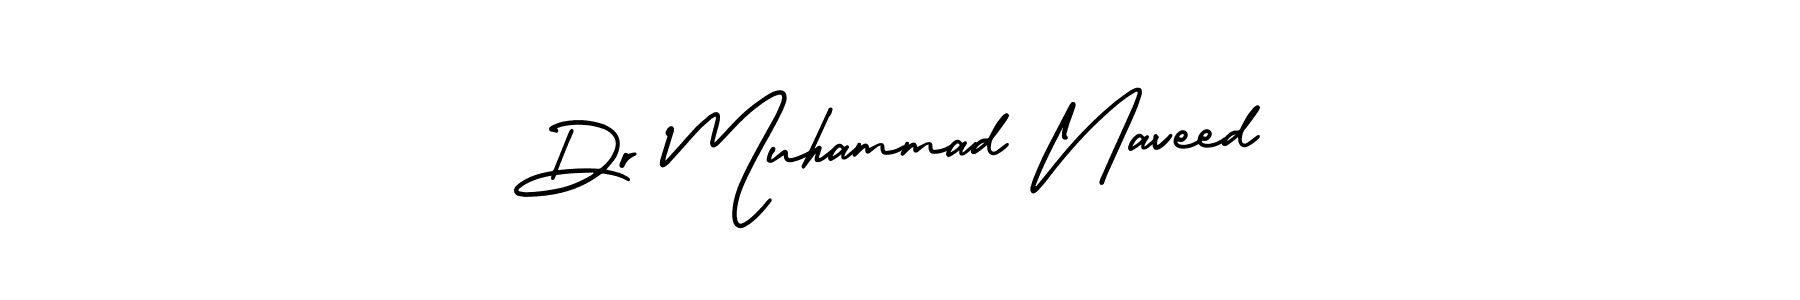 Dr Muhammad Naveed